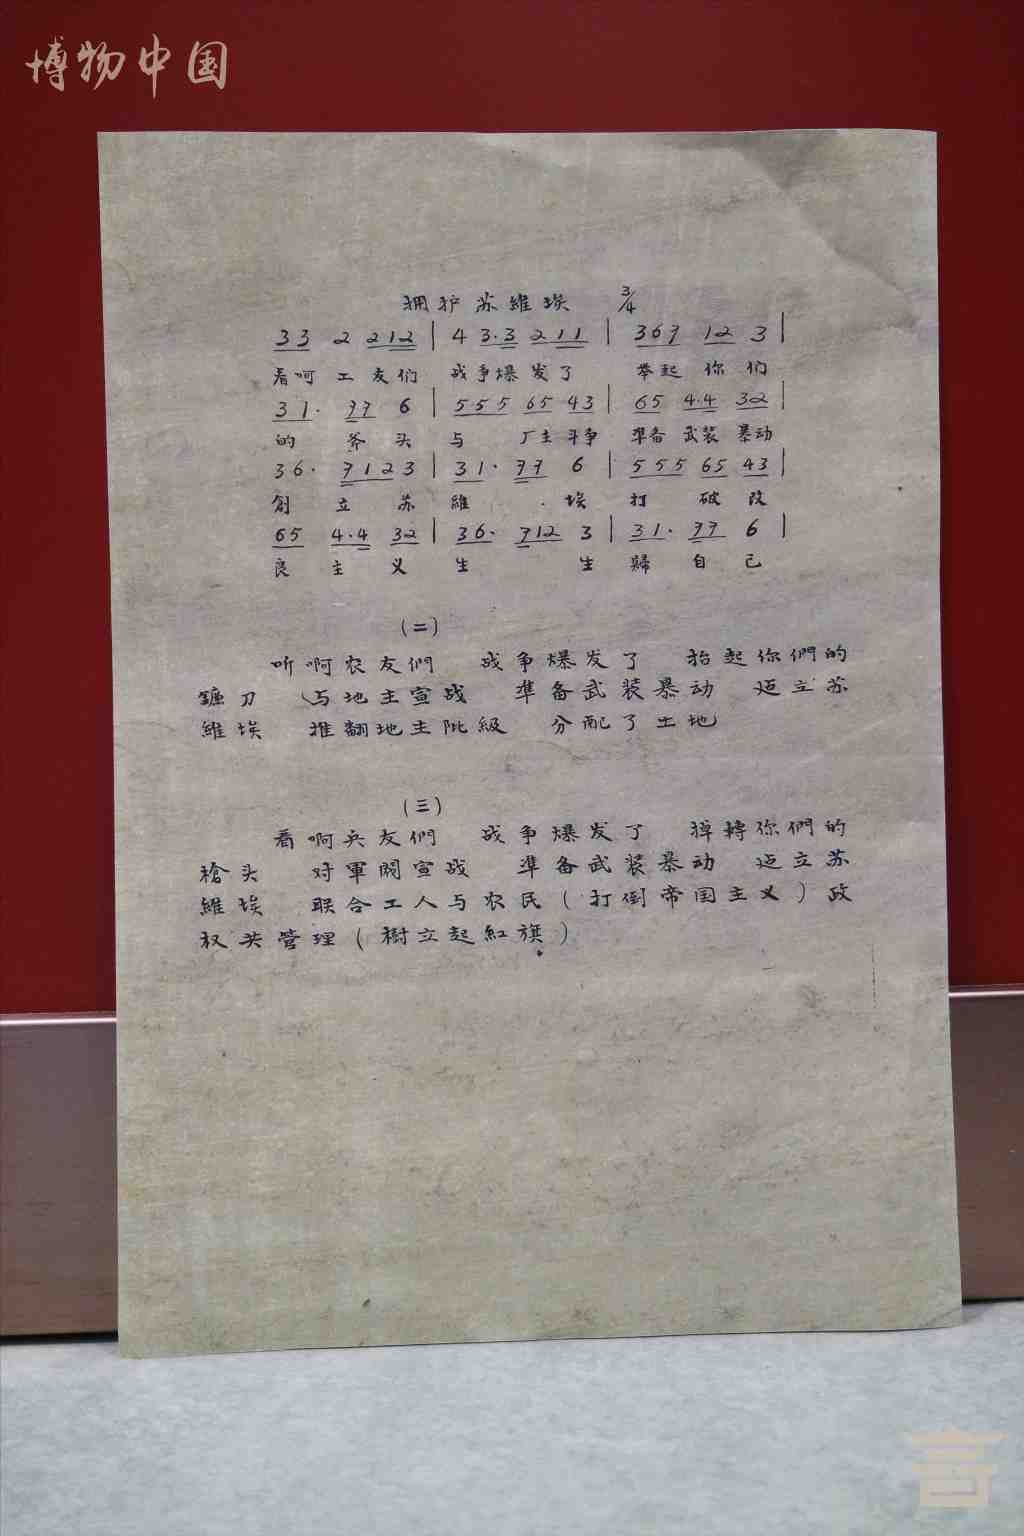 博物中国
拥护苏維埃 3/4
33 2 212 | 4 3·3 211 | 367 12 3 |
看呵工友们 战争爆发了 举起你们
31· 77 6 | 555 65 43 | 65 4·4 32 |
的斧头与厂主斗争 準备武装暴动
36· 7123 | 31· 77 6 | 555 65 43 |
創立苏維埃打破改
65 4·4 32 | 36· 712 3 | 31· 77 6 |
良主义生生歸自己
(二)
听啊农友們 战争爆发了 抬起你們的
鐮刀 与地主宣战 準备武装暴动 迈立苏
維埃 推翻地主阶級 分配了土地
(三)
看啊兵友們 战争爆发了 掉轉你們的
槍头 对軍閥宣战 準备武装暴动 迈立苏
維埃 联合工人与农民(打倒帝国主义)政
权共管理(樹立起紅旗)。
言